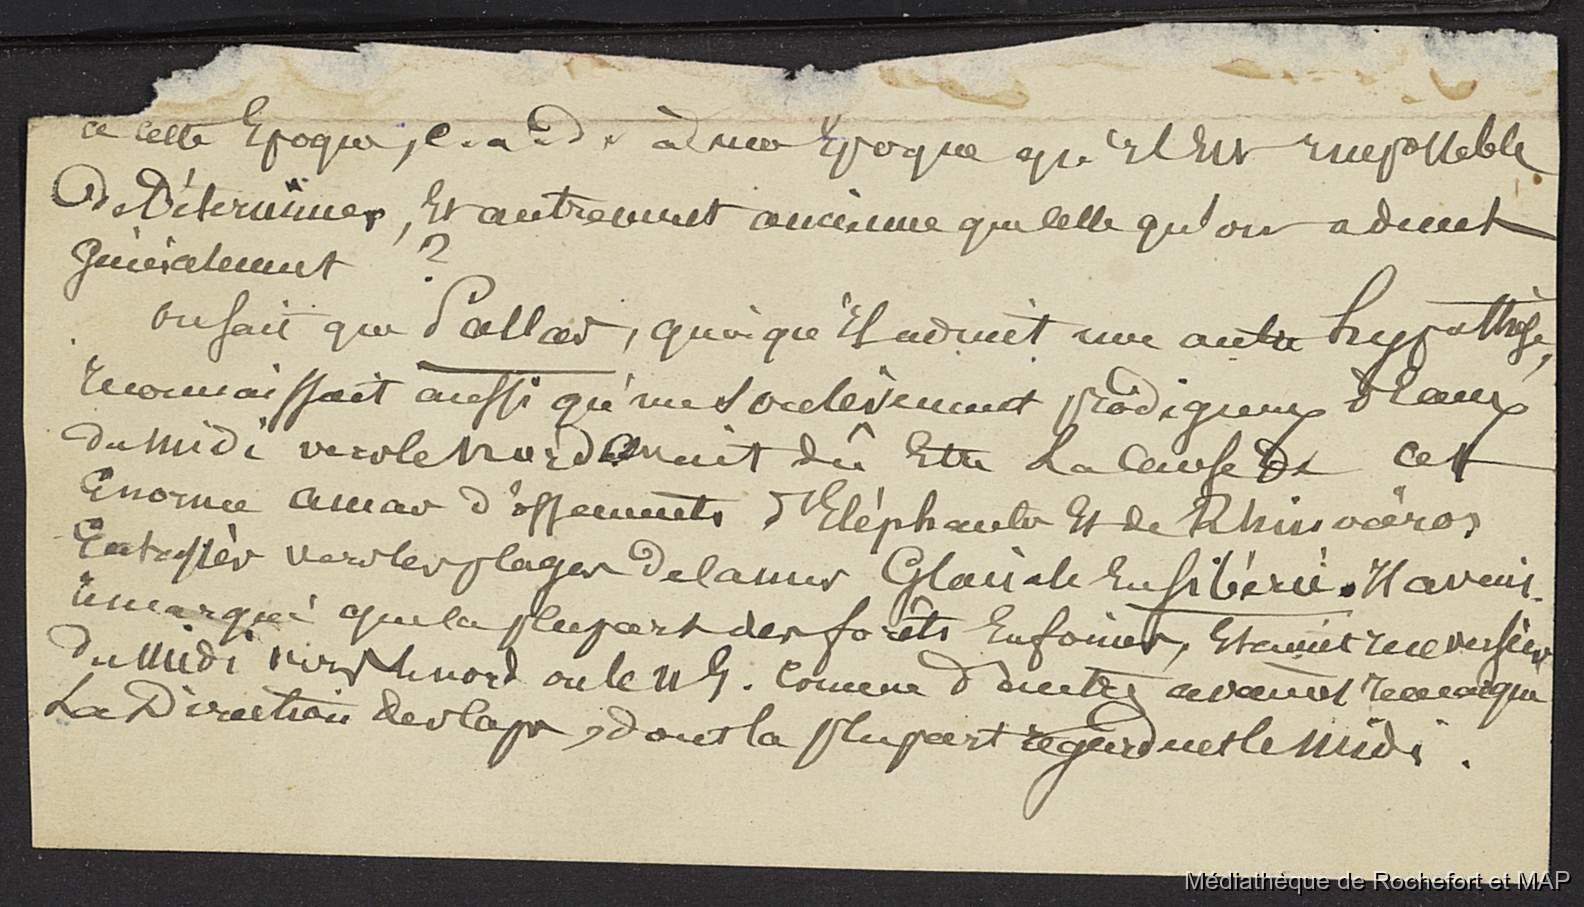 a cette Epoque, c. a. d. à une Epoque qu'il Est impossible
de Déterminer, Et autrement ancienne que celle qu'on admet
généralement ?
on sait que Pallas, quoiqu'il admit une autre hypothèse,
reconnaissait aussi qu'un soulèvement prodigieux d'eaux
du midi vers le nord avait dû Etre la cause de cet
Enorme amas d'ossements d'Eléphants Et de Rhinocéros
Entassés vers les plages de la mer Glaciale En sibérie. Il avait
remarqué que la plupart des forêts Enfouies, Etaient renversées
du midi vers le nord ou le N E. comme d'autres avaient remarqué
La Direction des caps, dont la plupart regardent le midi.
Médiathèque de Rochefort et MAP